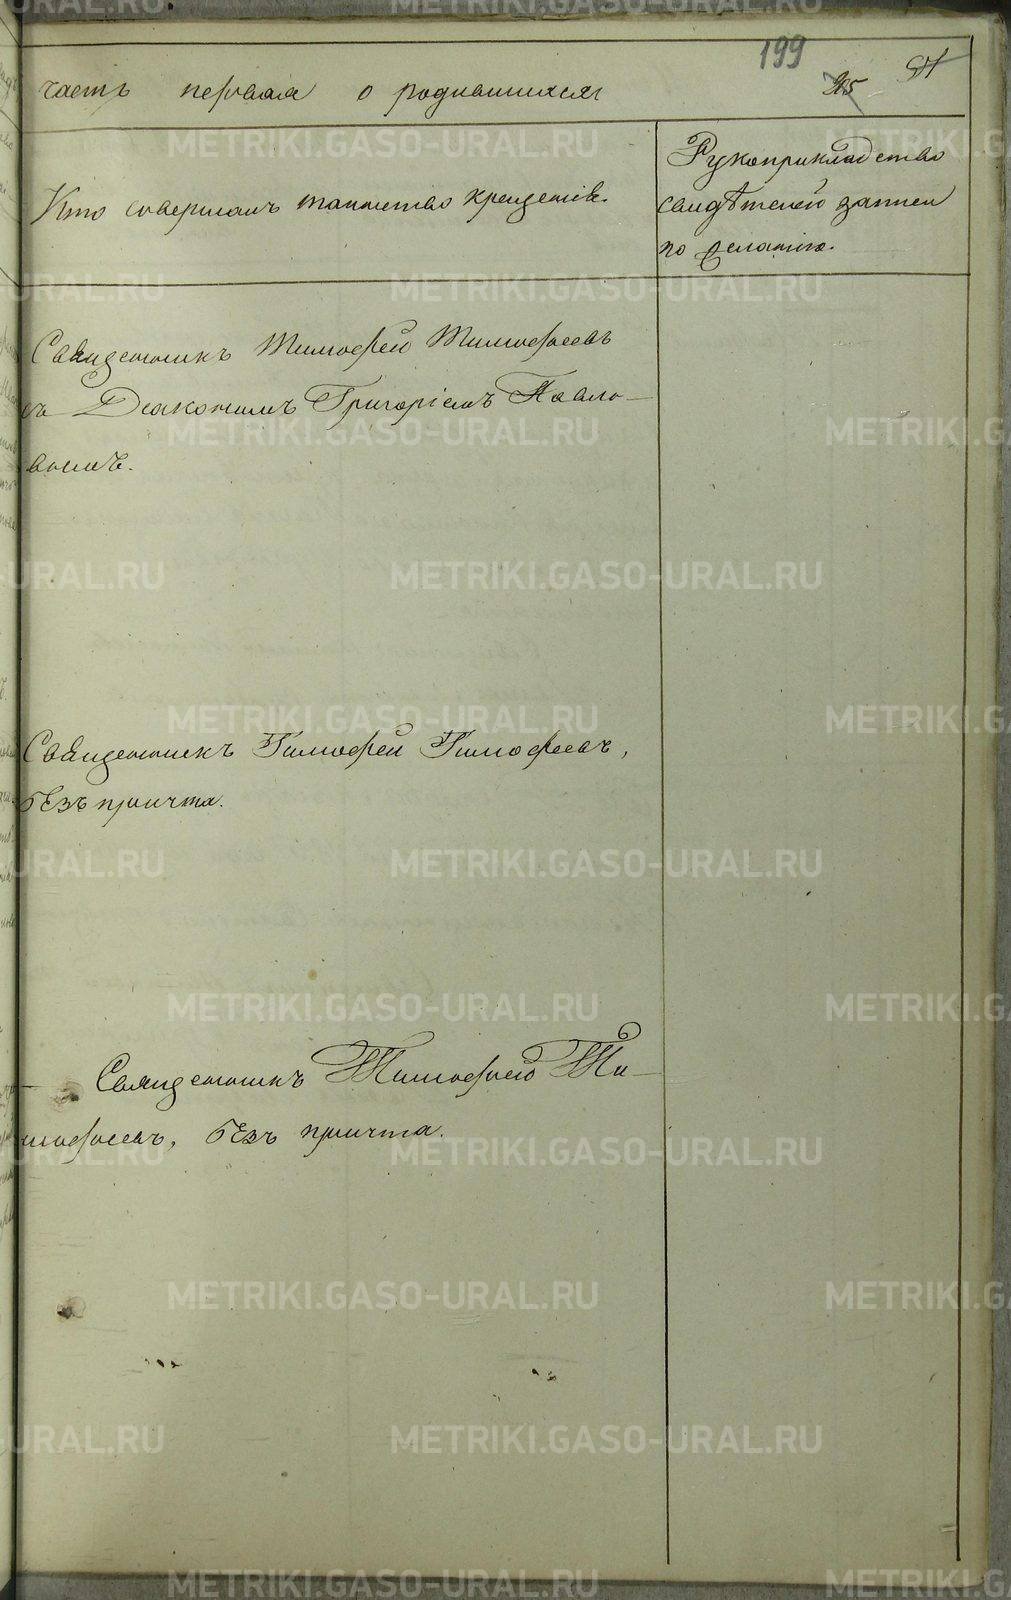 199
часть первая о родившихся 215 81
Кто совершалъ таинство крещенія.
Рукоприкладство
свидѣтелей записи
по желанію.
Священникъ Тимофей Тимофеевъ
съ Діакономъ Григоріемъ Павло-
вымъ.
Священникъ Тимофей Тимофеевъ,
безъ причта.
Священникъ Тимофей Ти-
мофеевъ, безъ причта.
METRIKI.GASO-URAL.RU